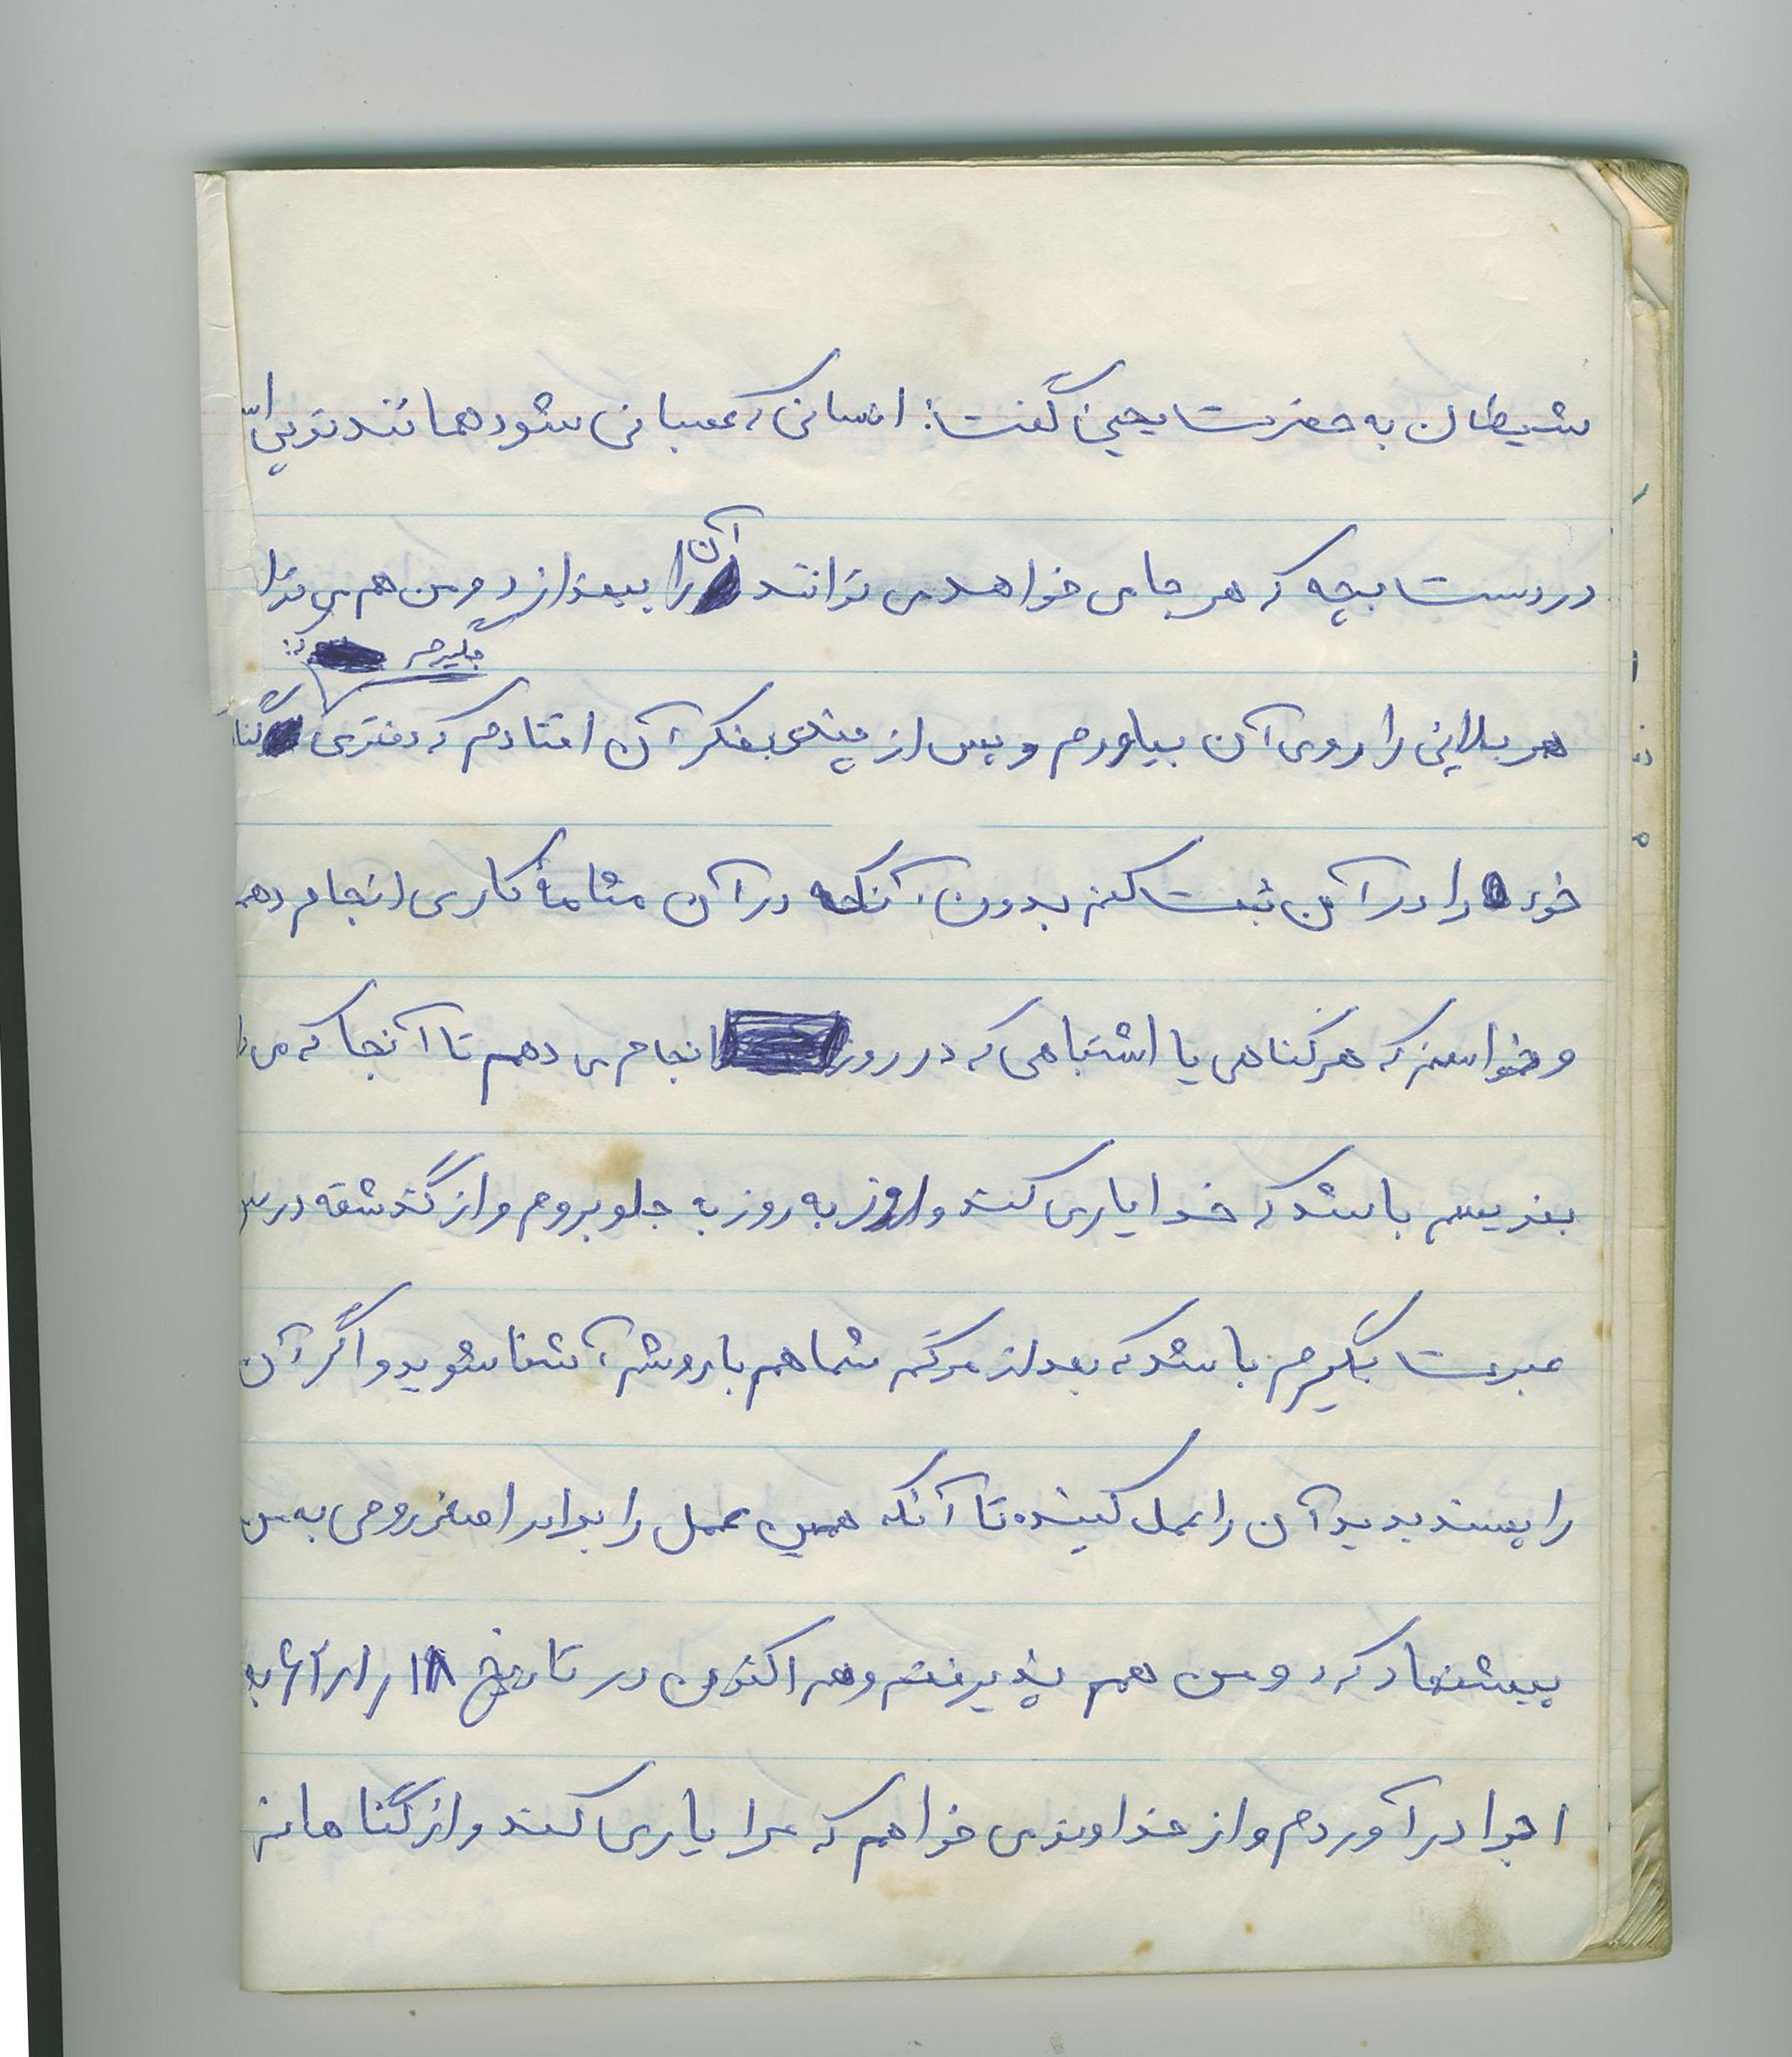 شیطان به حضرت یحیی گفت: انسانی که عصبانی شود همانند توپی است
در دست بچه که هر جا می خواهد می توانند آن را بیندازد و من هم می توا
بگیرم که
هر بلائی را روی آن بیاورم و پس از چندی بفکر آن افتادم که دفتری گنا
خود را در آن ثبت کنم بدون آنکه در آن مثلماً کاری انجام دهم
و خواستم که هر گناهی یا اشتباهی که در روز انجام می دهم تا آنجا که می
بنویسم باشد که خدا یاری کند و روز به روز به جلو بروم و از گذشته درس
عبرت بگیرم باشد که بعد از مرگم شما هم با روشم آشنا شوید و اگر آن
را پسندیدید آن را عمل کنید تا آنکه همین عمل را برادر اصغر روحی به من
پیشنهاد کرد و من هم پذیرفتم و هم اکنون در تاریخ به
اجرا در آوردم و از خداوند می خواهم که مرا یاری کند و از گناهانم